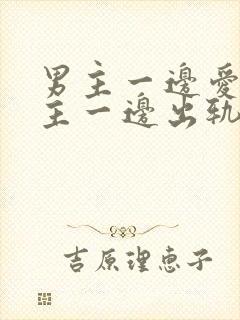 男主一邊愛
主一邊出軌
吉原理恵子